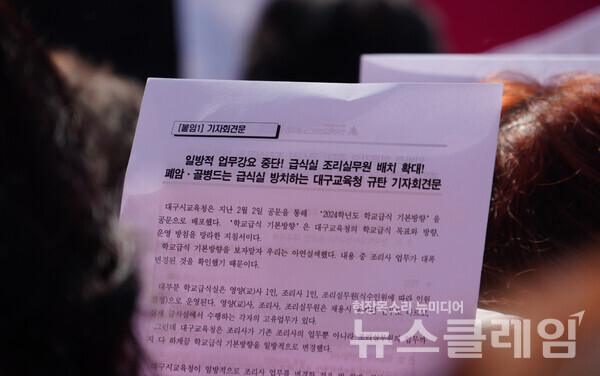 [붙임1] 기자회견문
일방적 업무강요 중단! 급식실 조리실무원 배치 확대!
폐암·골병드는 급식실 방치하는 대구교육청 규탄 기자회견문
대구시교육청은 지난 2월 2일 공문을 통해 '2024학년도 학교급식 기본방향'을
공문으로 배포했다. '학교급식 기본방향'은 대구교육청의 학교급식 목표와 방향,
운영 방침을 망라한 지침서이다.
학교급식 기본방향을 보자말자 우리는 아연실색했다. 내용 중 조리사 업무가 대폭
변경된 것을 확인했기 때문이다.
대부분 학교급식실은 영양(교)사 1인, 조리사 1인, 조리실무원(식수인원에 따라 인원
으로 운영된다. 영양(교)사, 조리사, 조리실무원은 채용시
급식실에서 수행하는 각자의 고유업무가 있다.
그런데 대구교육청은 조리사가 기존 조리사의 업무뿐 아니라 조리실무원의 업무까
지 다 하게끔 학교급식 기본방향을 일방적으로 변경했다.
대구시교육청이 일방적으로 조리사 업무를
현장목소리 뉴미디어
뉴스클레임